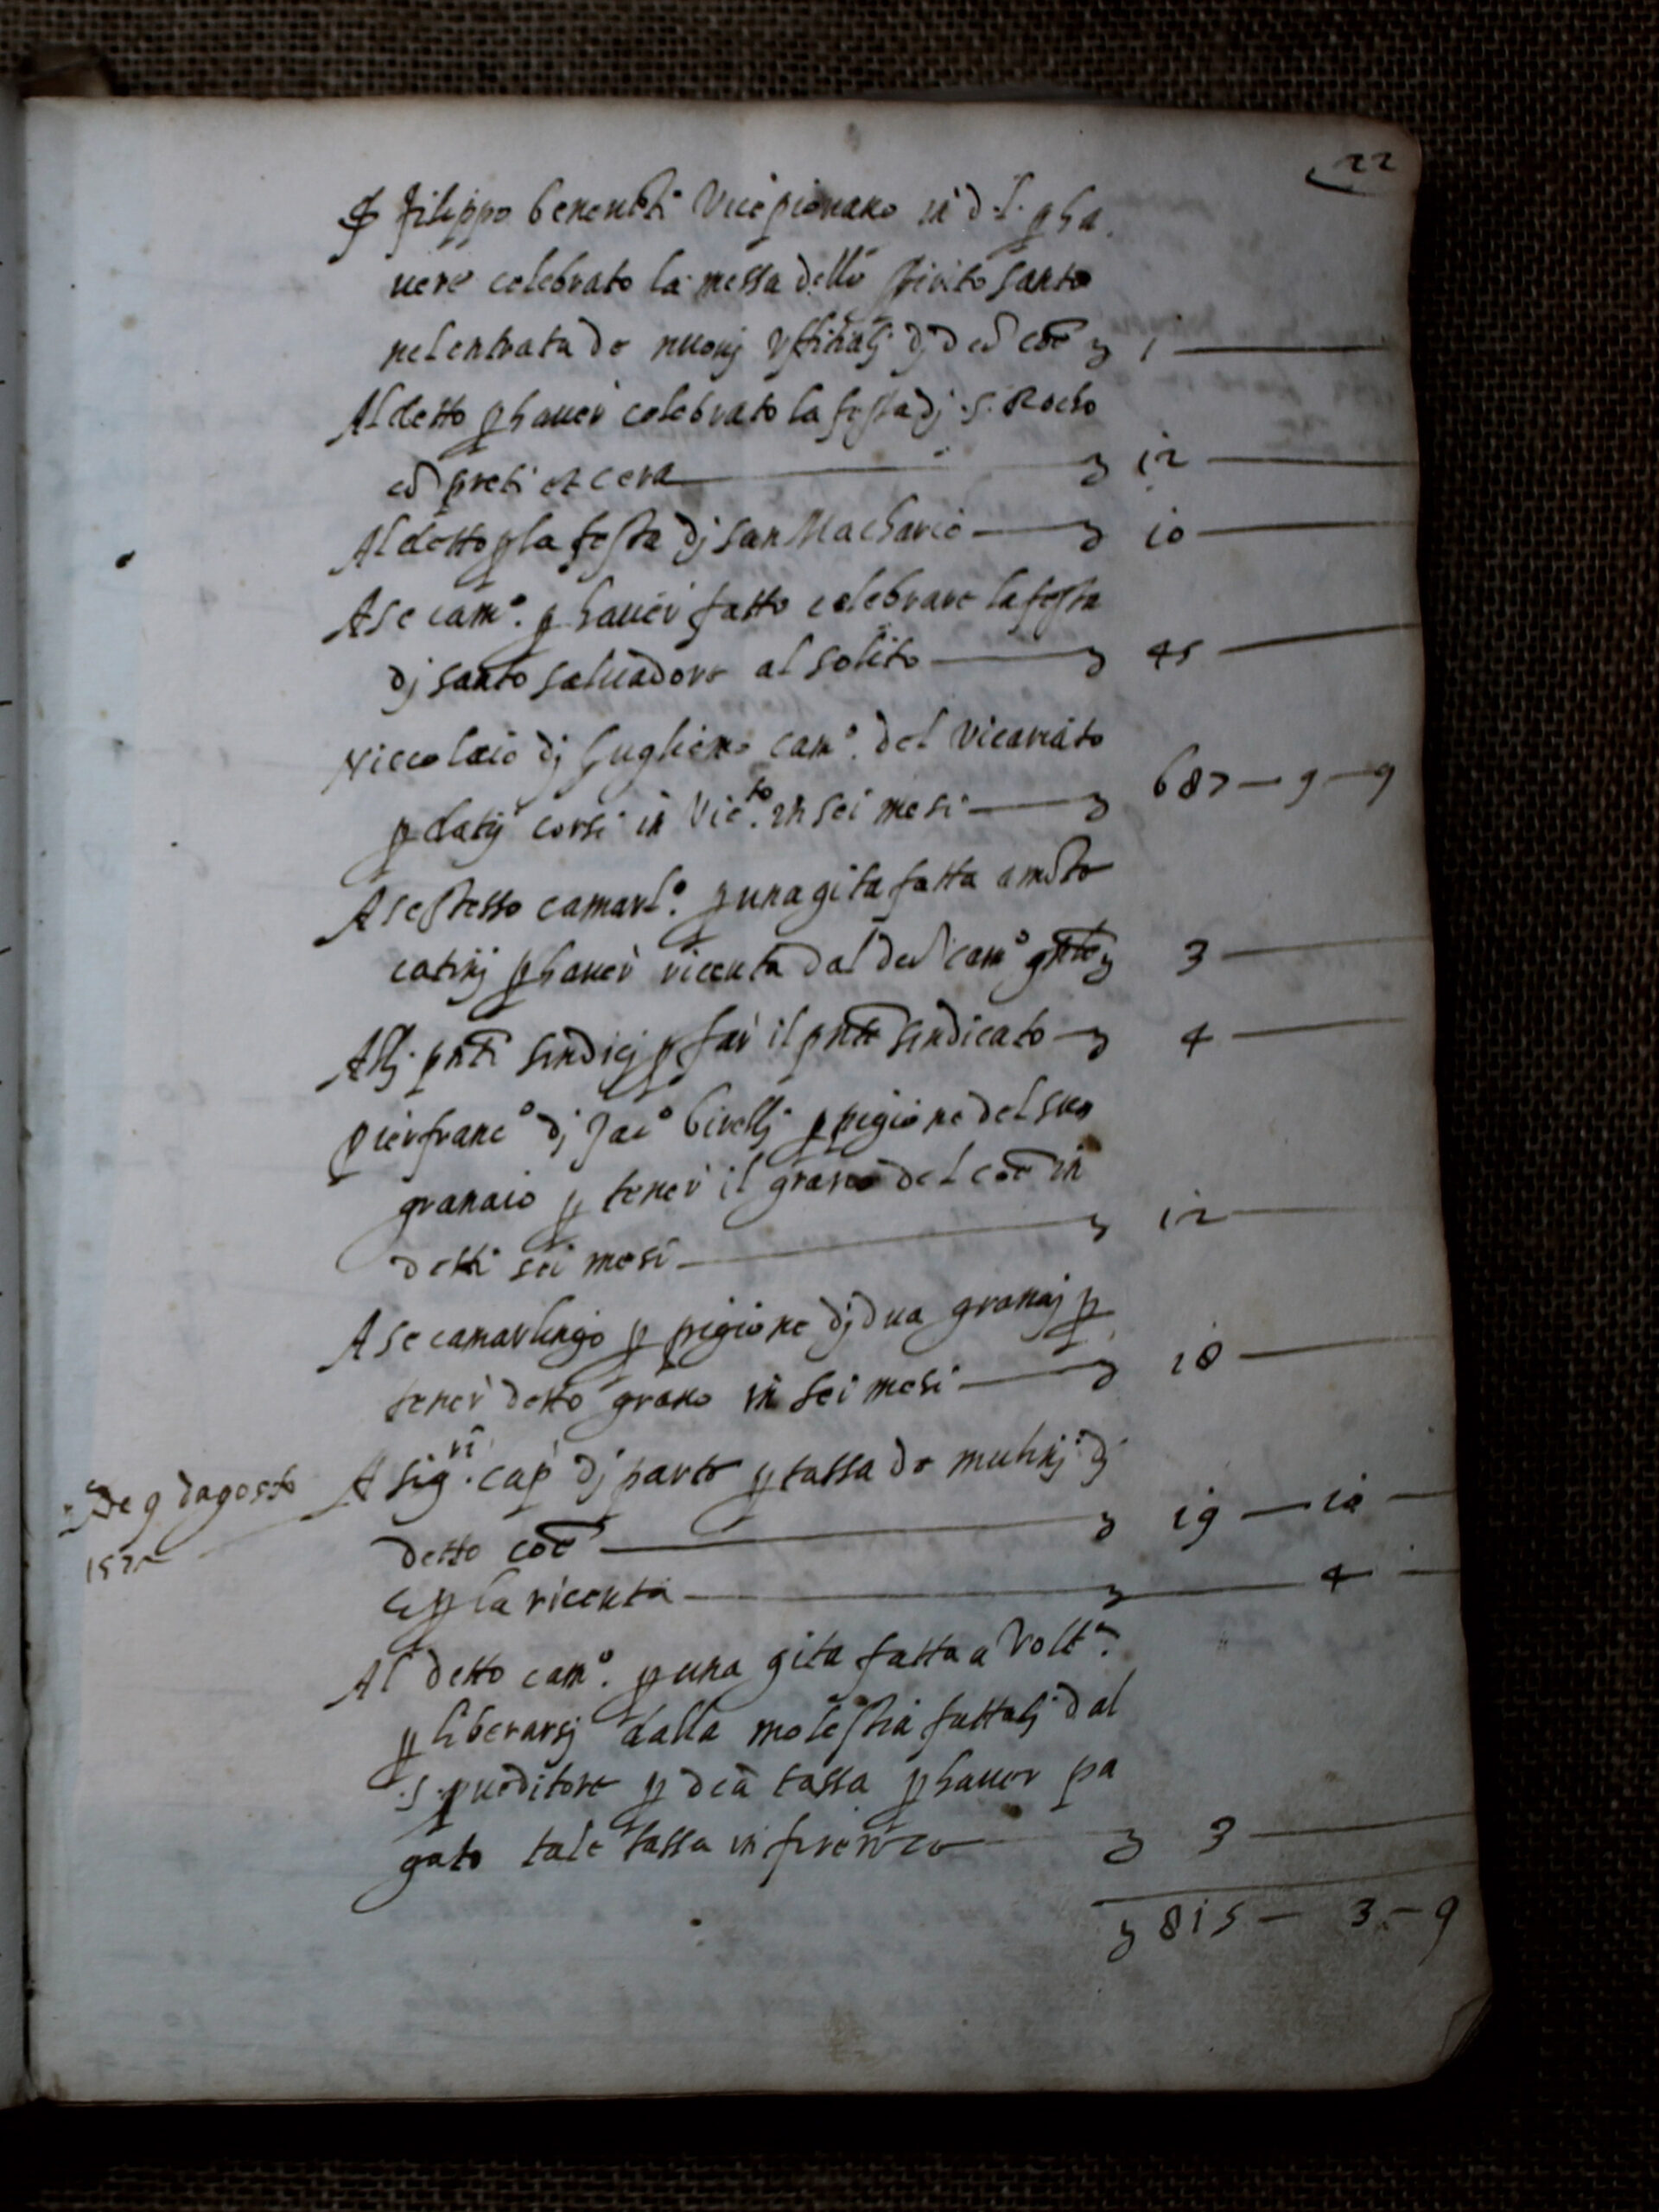 22
filippo beneneti Vicepiovano in d. l. p ha
vere celebrato la messa dello spirito santo
nel entrata de nuovj Uffitialj dj d co͞e 1
Al detto p haver celebrato la festa dj .S. Rocho
co preti et cera 12
Al detto p la festa dj san Machario 10
A se cam.o p haver fatto celebrare la festa
dj santo salvadore al solito 45
Niccolaio dj Guglielmo cam.o del vicariato
p datij corsi in Vic.to in sei mesi 687 — 9 — 9
A se stesso camarl.o p una gita fatta a monte
catinj p haver ricevuta dal cam.o 3
Alj pn͞ti sindicj p far il pn͞te sindicato 4
pierfranc.o dj Jac.o birellj p pigione del suo
granaio p tener il grano del co͞e in
detti sei mesi 12
A se camarlingo p pigione dj dua granaj p
tener detto grano in sei mesi 18
A sig.ri cap dj parte p tassa de mulinj dj
De 9 dagosto
157
detto co͞e 19 — 10 —
E p la ricevuta 4 —
Al detto cam.o p una gita fatta a Volt.a
p liberarsj dalla molestia fattalj dal
.s. proveditore p dca tassa p haver pa
gato tale tassa in firenze 3
815 — 3 — 9